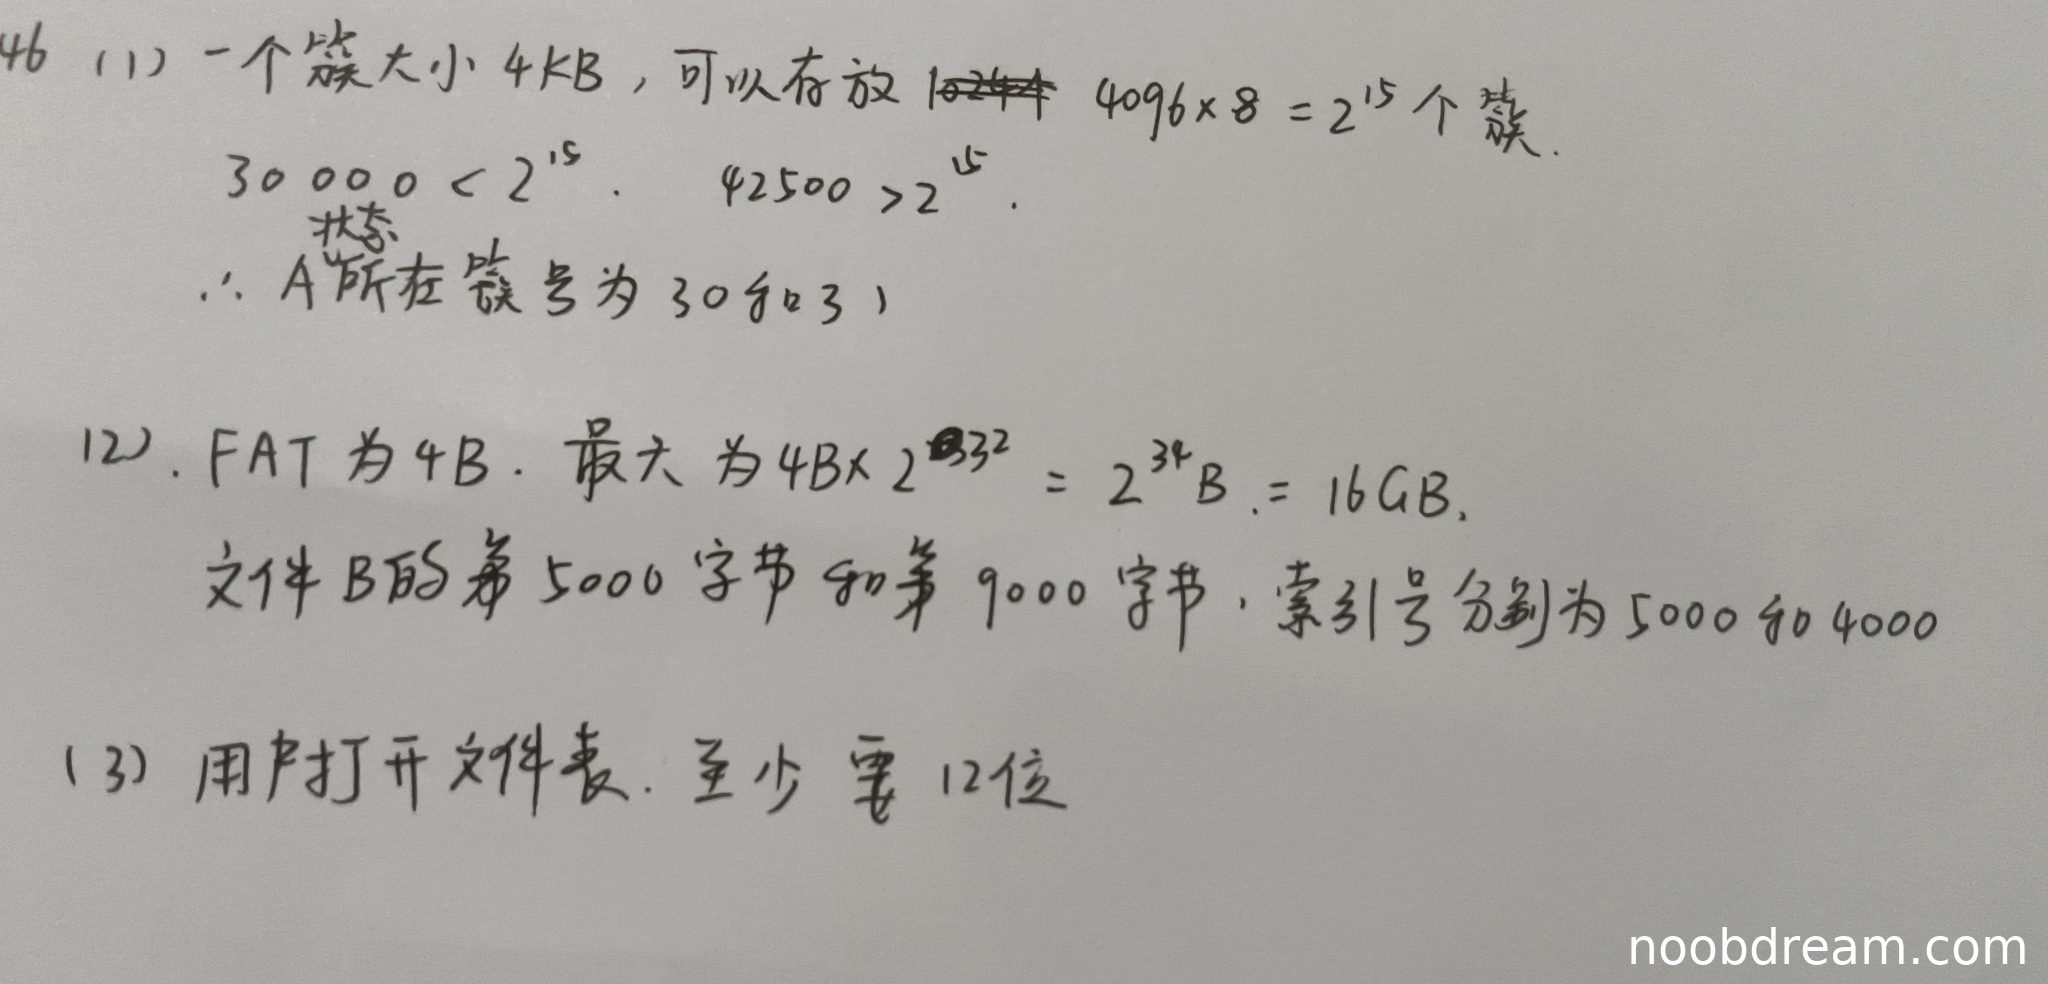 46 (1) 一个簇大小4KB，可以存放 4096×8 = 2^15个簇.
30000 < 2^15. 42500 > 2^15.
状态
∴ A所在簇号为30和31
(2). FAT为4B. 最大为4B×2^32 = 2^34B. = 16GB.
文件B的第5000字节和第9000字节，索引号分别为5000和4000
(3) 用户打开文件表. 至少需12位
noobdream.com